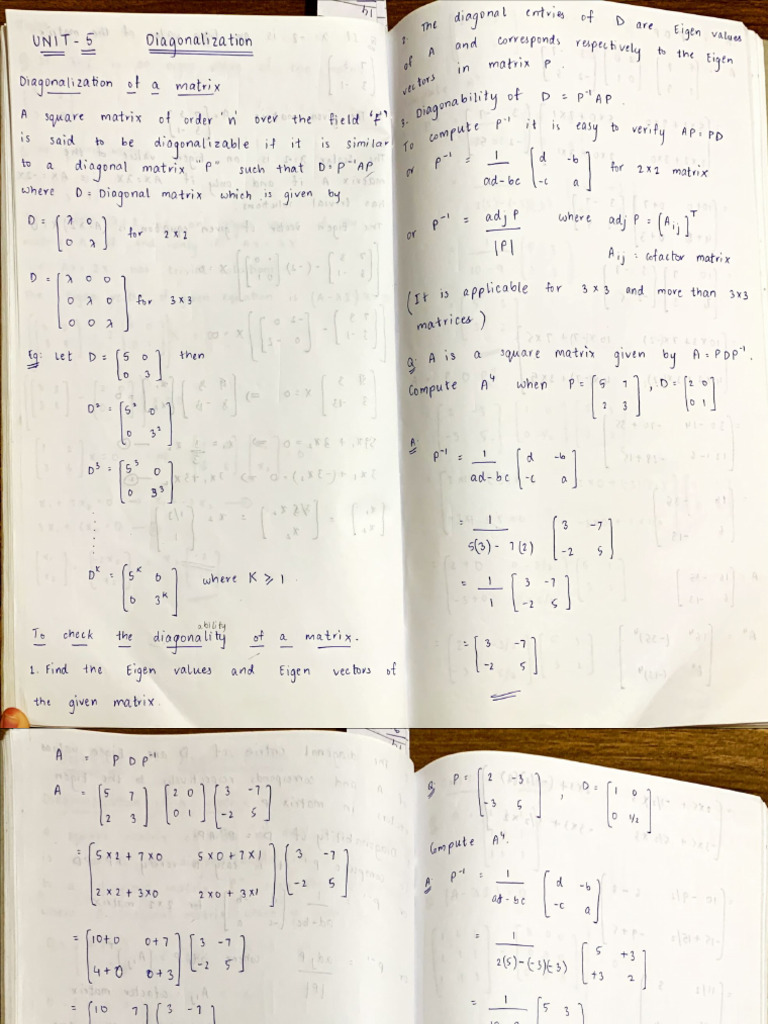 UNIT-5 Diagonalization
Diagonalization of a matrix
A square matrix of order 'n' over the field 'F'
is said to be diagonalizable if it is similar
to a diagonal matrix "P" such that D=P⁻¹AP
where D = Diagonal matrix which is given by
D = [λ 0
0 λ] for 2x2
D = [λ 0 0
0 λ 0
0 0 λ] for 3x3
Eg: Let D = [5 0
0 3] then
D² = [5² 0
0 3²]
D³ = [5³ 0
0 3³]
Dᴷ = [5ᴷ 0
0 3ᴷ] where K ≥ 1
To check the diagonalability of a matrix.
1. Find the Eigen values and Eigen vectors of
the given matrix.
2. The diagonal entries of D are Eigen values
of A and corresponds respectively to the Eigen
vectors in matrix P.
3. Diagonability of D = P⁻¹AP.
To compute P⁻¹ it is easy to verify AP=PD
or P⁻¹ = 1/(ad-bc) [d -b
-c a] for 2x2 matrix
or P⁻¹ = adj P/|P| where adj P = [Aij]ᵀ
Aij = cofactor matrix
(It is applicable for 3x3 and more than 3x3
matrices)
Q: A is a square matrix given by A = PDP⁻¹.
Compute A⁴ when P = [5 7
2 3], D = [2 0
0 1]
A: P⁻¹ = 1/(ad-bc) [d -b
-c a]
= 1/(5(3)-7(2)) [3 -7
-2 5]
= 1/1 [3 -7
-2 5]
= [3 -7
-2 5]
A = P D P⁻¹
A = [5 7
2 3] [2 0
0 1] [3 -7
-2 5]
= [5x2+7x0 5x0+7x1
2x2+3x0 2x0+3x1] [3 -7
-2 5]
= [10+0 0+7
4+0 0+3] [3 -7
-2 5]
= [10 7] [3 -7]
Q: P = [2 -3
-3 5], D = [1 0
0 1/2]
Compute A⁴.
A: P⁻¹ = 1/(ad-bc) [d -b
-c a]
= 1/(2(5)-(-3)(-3)) [5 +3
+3 2]
= 1 [5 3]